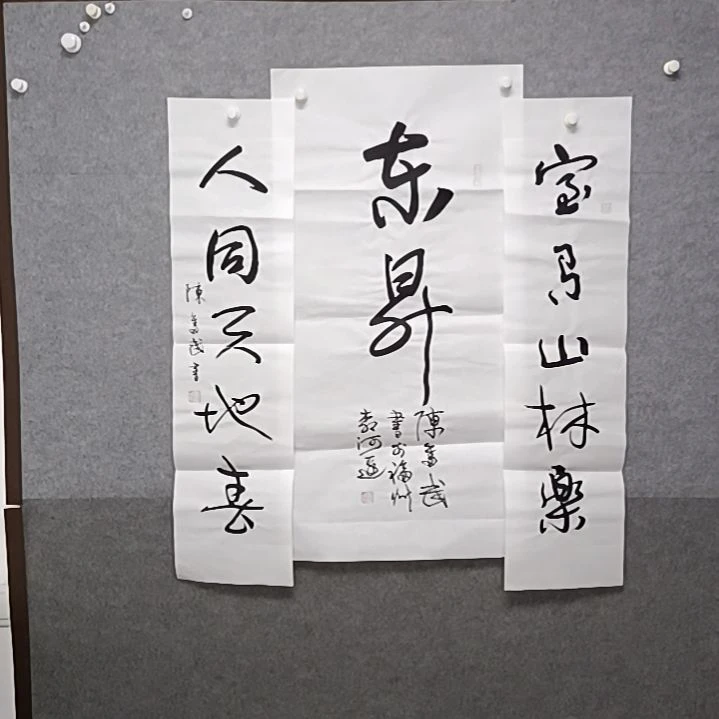 室有山林樂
东昇
陳奮武
書於福州
河邊
人同天地春
陳奮武書